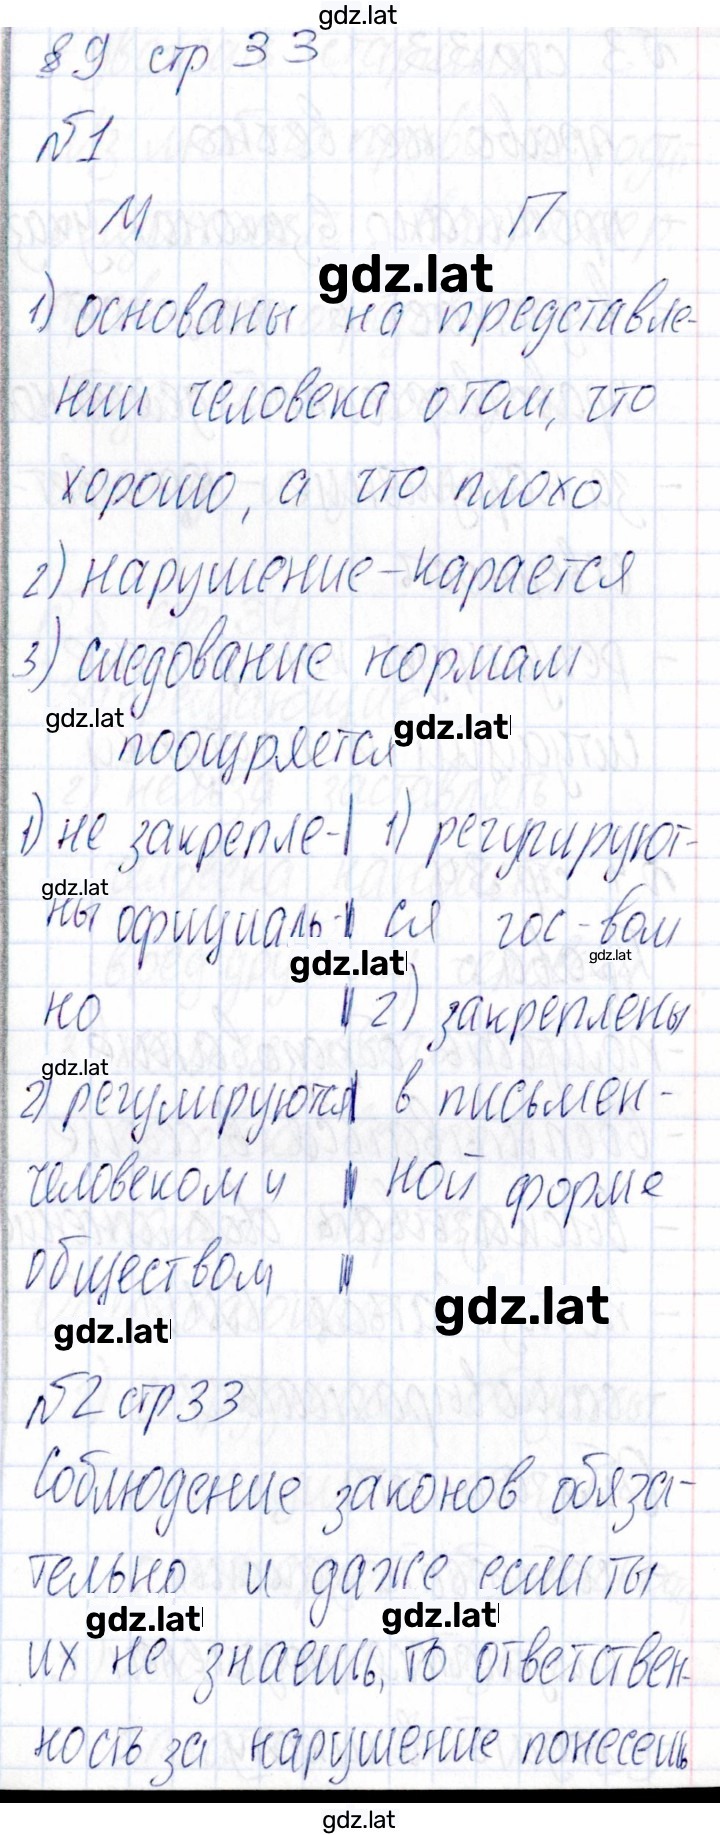 gdz.lat
§9 стр 33
№1
М П
gdz.lat
1) основаны на представле-
нии человека о том, что
хорошо, а что плохо
2) нарушение - карается
3) следование нормам
gdz.lat gdz.lat
поощряется
1) не закрепле- 1) регулируют-
gdz.lat
ны официаль- ся гос-вом
gdz.lat gdz.lat
но 2) закреплены
gdz.lat
2) регулируются в письмен-
человеком и ной форме
обществом
gdz.lat
gdz.lat
№2 стр 33
Соблюдение законов обяза-
тельно и даже если ты
gdz.lat gdz.lat
их не знаешь, то ответствен-
ность за нарушение понесешь
gdz.lat